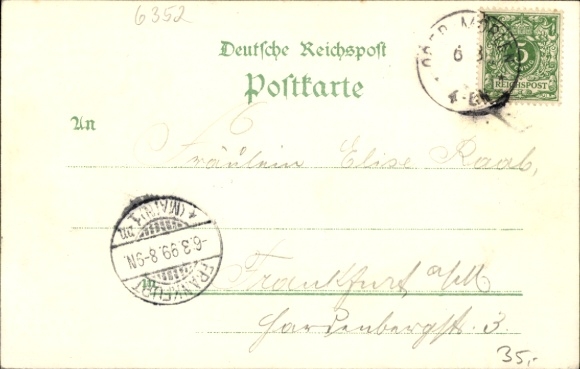 6352
Deutsche Reichspost
Postkarte
5
REICHSPOST
OBER-
6 3
An
Fräulein Elise Raab,
FRANKFURT
(MAIN) 1
-6.3.99.8-9N.
in
Frankfurt a/M
Hardenbergstr. 3.
35,-